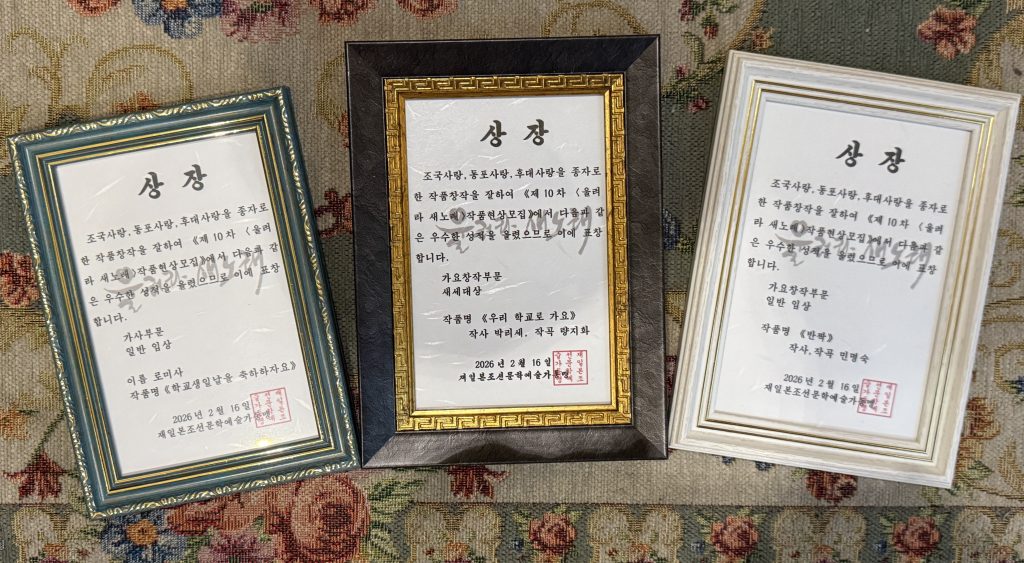 상 장
조국사랑, 동포사랑, 후대사랑을 종자로
한 작품창작을 잘하여 《제 10 차 〈울려
라 새노래〉작품현상모집》에서 다음과 같
은 우수한 성적을 올렸으므로 이에 표창
합니다.
가사부문
일반 입상
이름 로미사
작품명 《학교생일날을 축하하자요》
2026 년 2 월 16 일
재일본조선문학예술가동맹
상 장
조국사랑, 동포사랑, 후대사랑을 종자로
한 작품창작을 잘하여 《제 10 차 〈울려
라 새노래〉작품현상모집》에서 다음과 같
은 우수한 성적을 올렸으므로 이에 표창
합니다.
가요창작부문
새세대상
작품명 《우리 학교로 가요》
작사 박리세, 작곡 량지화
2026 년 2 월 16 일
재일본조선문학예술가동맹
상 장
조국사랑, 동포사랑, 후대사랑을 종자로
한 작품창작을 잘하여 《제 10 차 〈울려
라 새노래〉작품현상모집》에서 다음과 같
은 우수한 성적을 올렸으므로 이에 표창
합니다.
가요창작부문
일반 입상
작품명 《반짝》
작사, 작곡 민명숙
2026 년 2 월 16 일
재일본조선문학예술가동맹